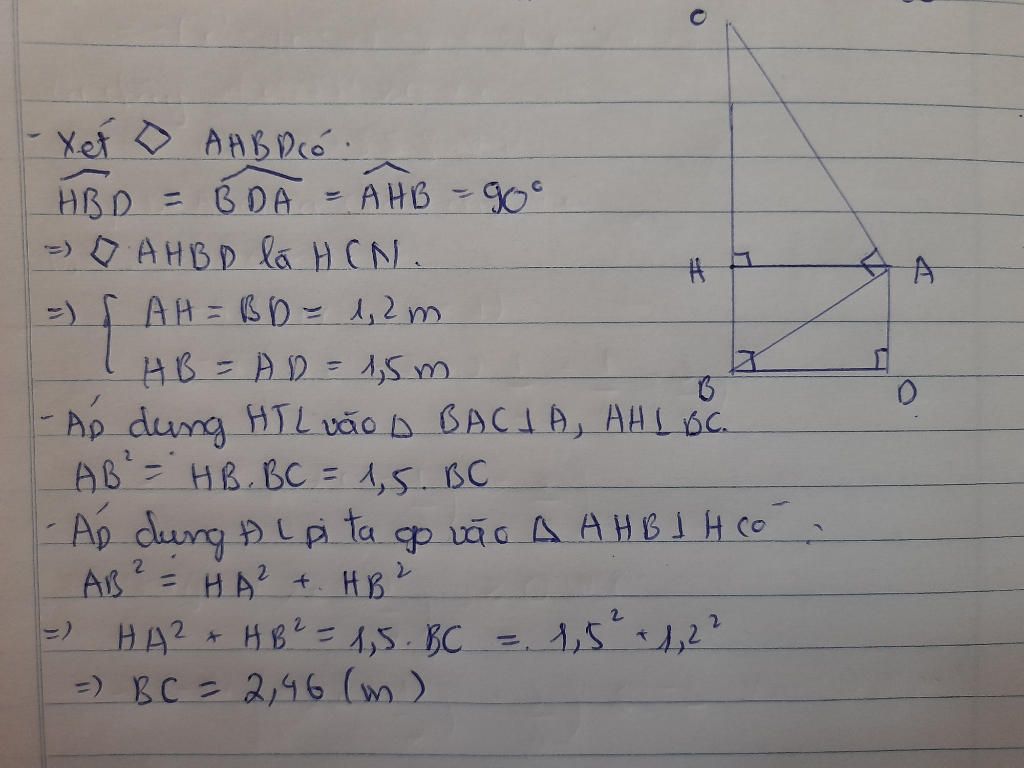 - Xét ◇ AHBD có:
HBD = BDA = AHB = 90°
=> ◇ AHBD là HCN.
=> { AH = BD = 1,2 m
HB = AD = 1,5 m
- Áp dụng HTL vào Δ BAC⊥A, AH⊥BC.
AB² = HB.BC = 1,5. BC
- Áp dụng ĐL pi ta go vào Δ AHB⊥H có:
AB² = HA² + HB²
=> HA² + HB² = 1,5. BC = 1,5² + 1,2²
=> BC = 2,46 (m)
C
H
A
B
D